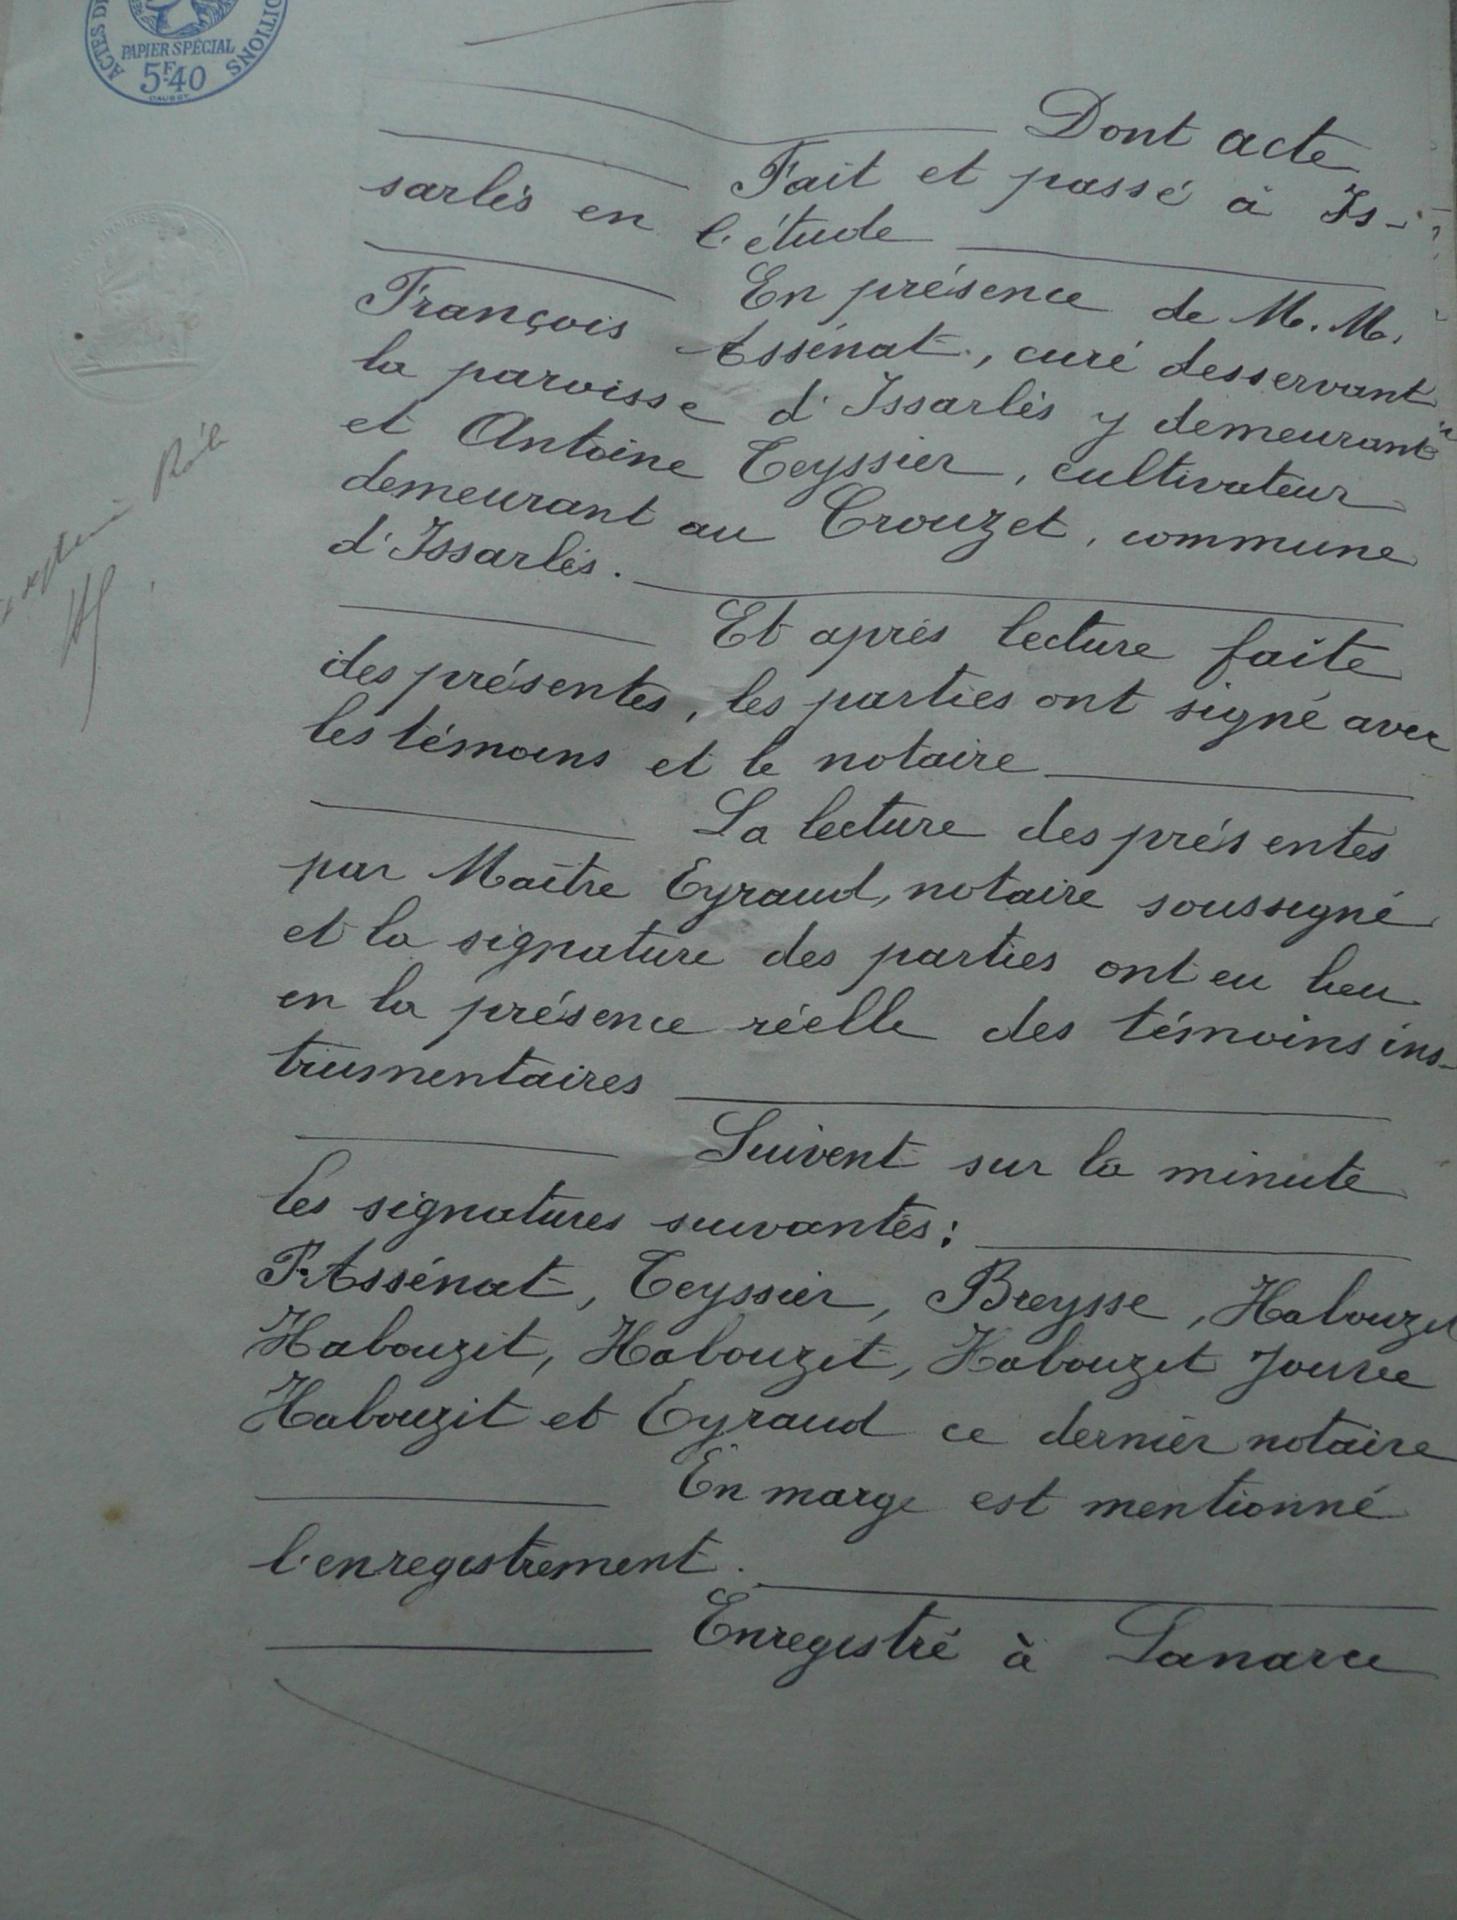 ACTES DE
DITIONS
PAPIER SPÉCIAL
5F40
Dont acte
Fait et passé à Is-
sarlès en l'étude
En présence de M. M.
François Assénat, curé desservant
la paroisse d'Issarlès y demeurant
et Antoine Teyssier, cultivateur
demeurant au Crouzet, commune
d'Issarlès.
Et après lecture faite
des présentes, les parties ont signé avec
les témoins et le notaire
La lecture des présentes
par Maître Eyraud, notaire soussigné
et la signature des parties ont eu lieu
en la présence réelle des témoins ins-
trumentaires
Suivent sur la minute
les signatures suivantes:
F. Assénat, Teyssier, Breysse, Habouzit
Habouzit, Habouzit, Habouzit Jouve
Habouzit et Eyraud ce dernier notaire
En marge est mentionné
l'enregistrement.
Enregistré à Lanarce